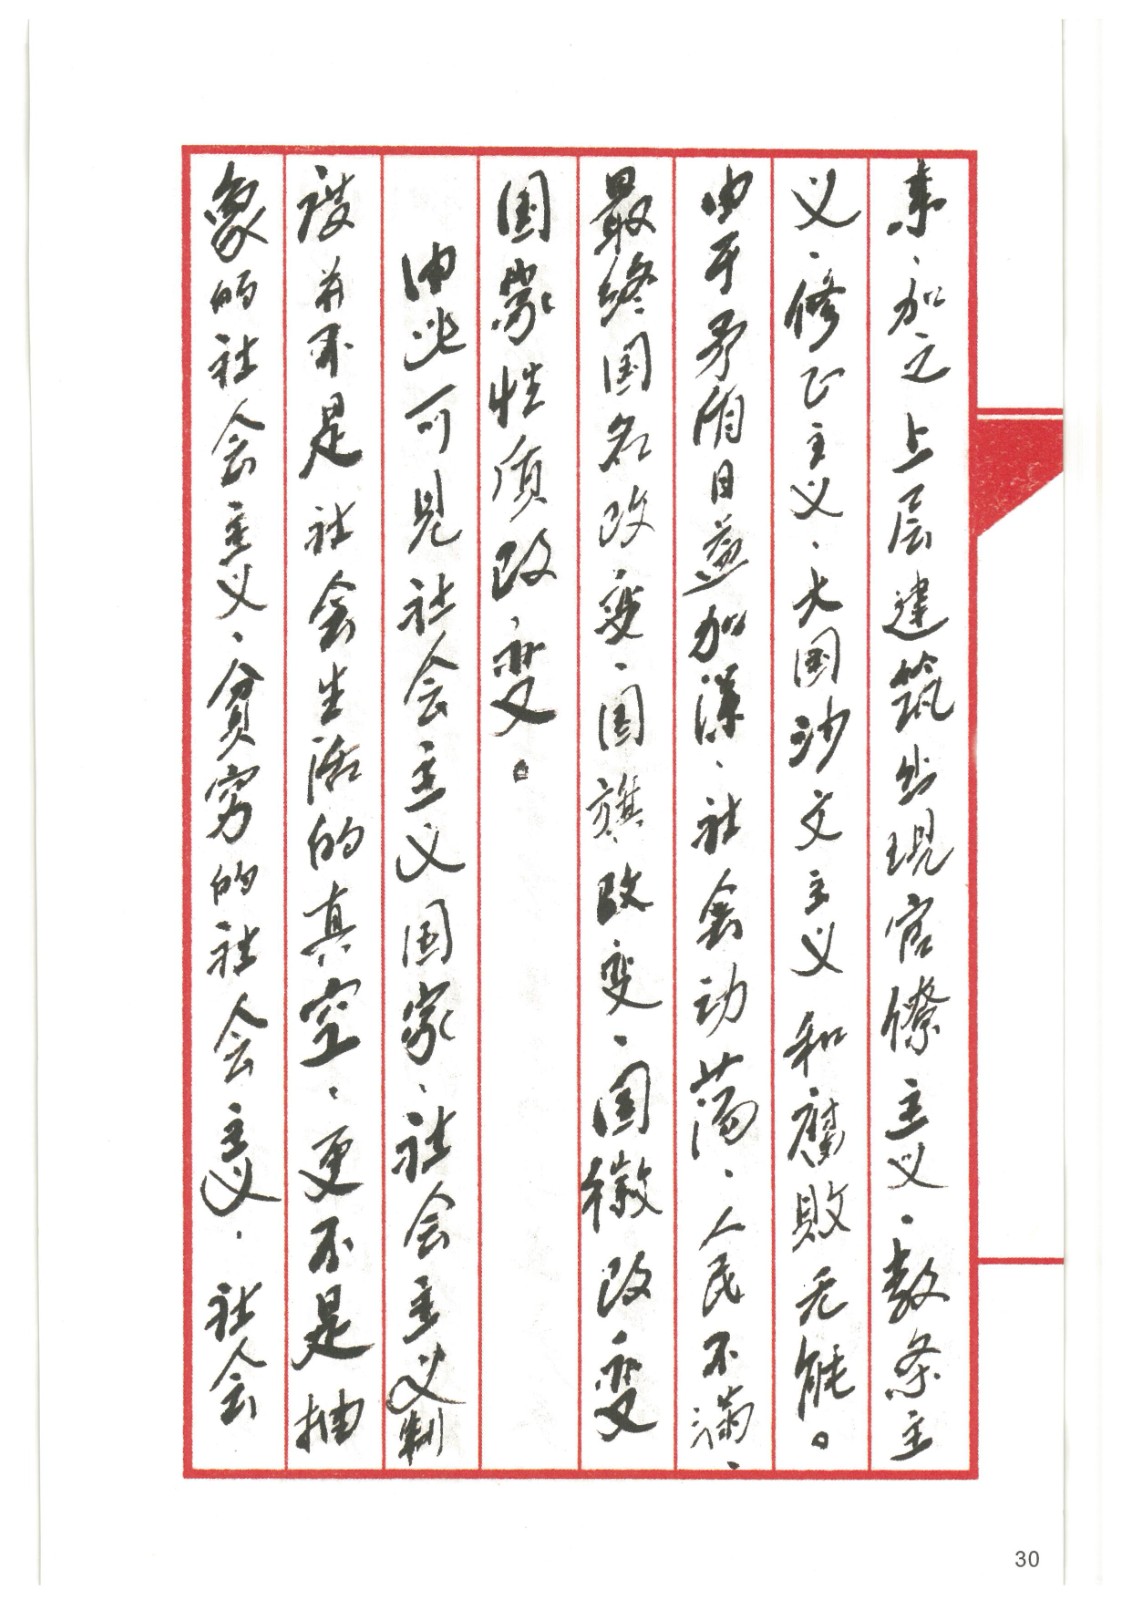 素、加之上层建筑出现官僚主义、教条主
义、修正主义、大国沙文主义和腐败无能。
由于矛盾日益加深、社会动荡、人民不满、
最终国名改变、国旗改变、国徽改变
国家性质改变。
由此可见社会主义国家、社会主义制
度并不是社会生活的真空、更不是抽
象的社会主义、贫穷的社会主义、社会
30